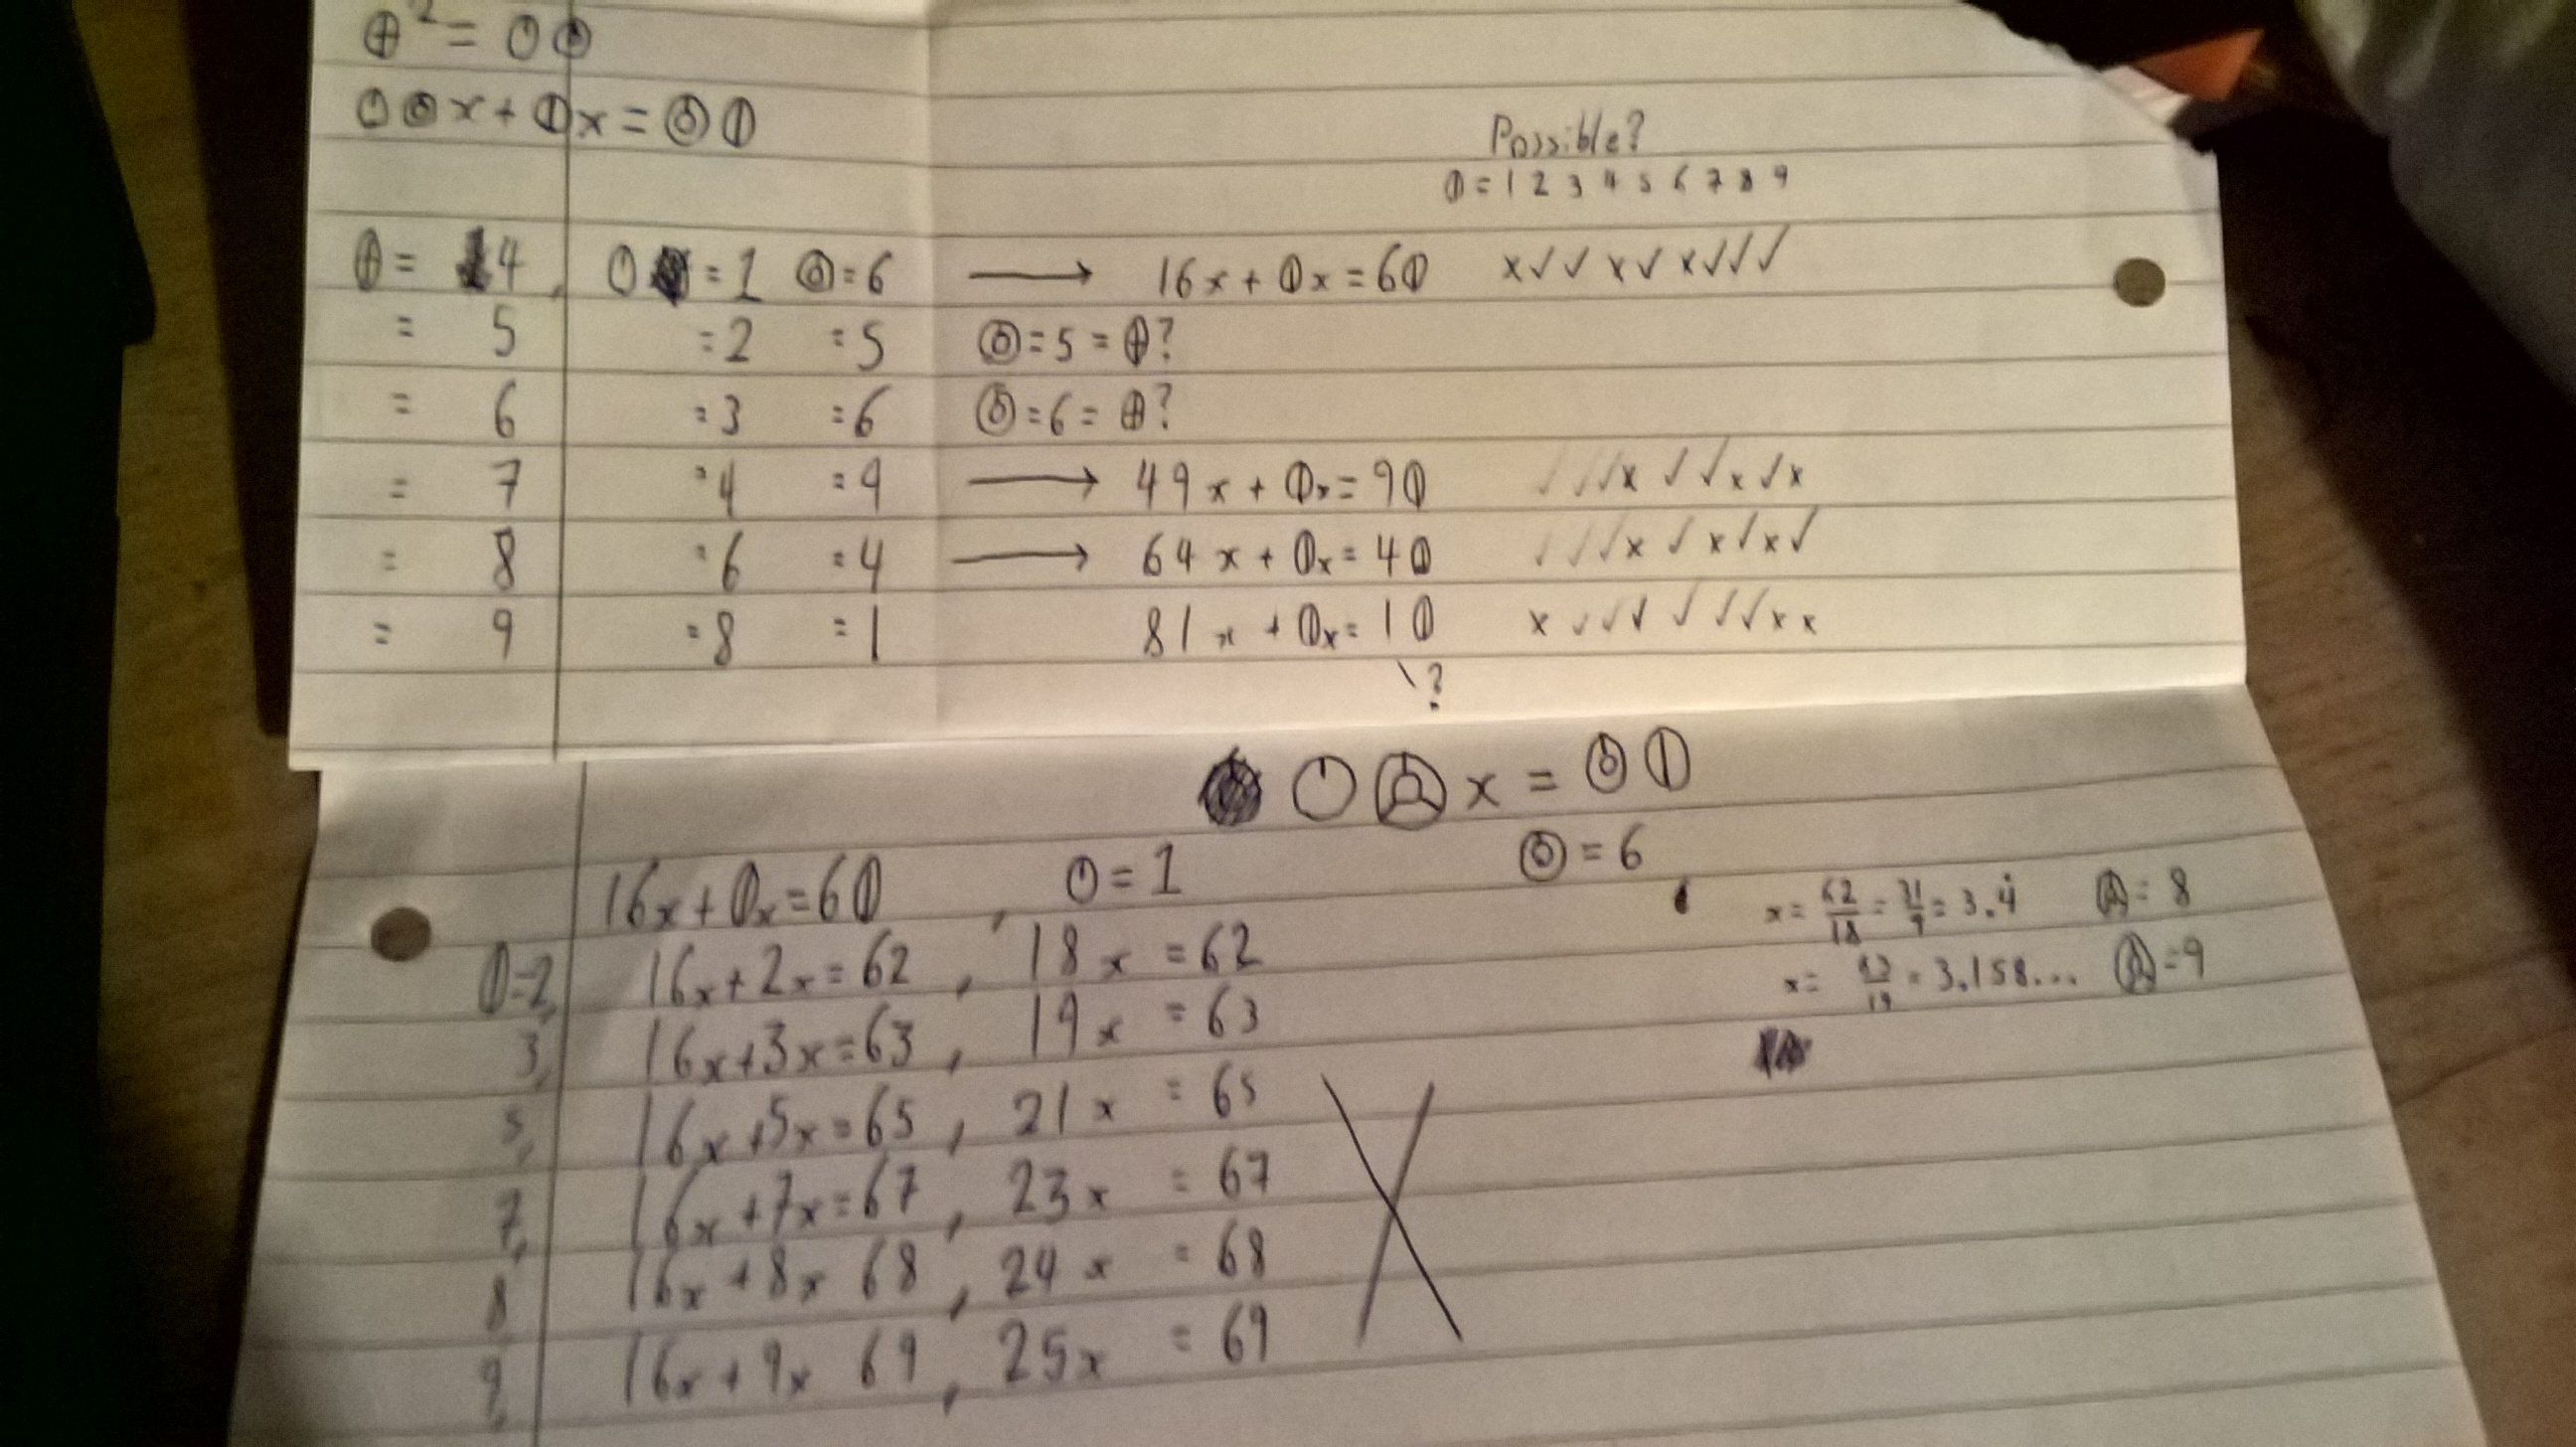 ⊕² = ⦶ ⊚
⦶ ⊚ x + ⦶ x = ⊚ ⦶
Possible?
⦶ = 1 2 3 4 5 6 7 8 9
⊕ = 4, = 1 ⊚ = 6 → 16x + ⦶x = 6⦶ x ✓ ✓ x ✓ x ✓ ✓ ✓
= 5 = 2 = 5 ⊚ = 5 = ⊕?
= 6 = 3 = 6 ⊚ = 6 = ⊕?
= 7 = 4 = 9 → 49x + ⦶x = 9⦶ ✓ ✓ ✓ x ✓ ✓ x ✓ x
= 8 = 6 = 4 → 64x + ⦶x = 4⦶ ✓ ✓ ✓ x ✓ x ✓ x ✓
= 9 = 8 = 1 81x + ⦶x = 1⦶ x ✓ ✓ ✓ ✓ ✓ ✓ x x
?
x = ⊚ ⦶
16x + ⦶x = 6⦶ , = 1 ⊚ = 6
⦶=2, 16x + 2x = 62 , 18x = 62 x = 62/18 = 31/9 = 3.4̇ = 8
3, 16x + 3x = 63 , 19x = 63 x = 63/19 = 3.158... = 9
5, 16x + 5x = 65 , 21x = 65
7, 16x + 7x = 67 , 23x = 67
8 16x + 8x 68 , 24x = 68
9, 16x + 9x 69 , 25x = 69